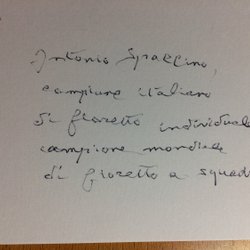 Antonio Spallino,
campione italiano
di fioretto individuale
campione mondiale
di fioretto a squad